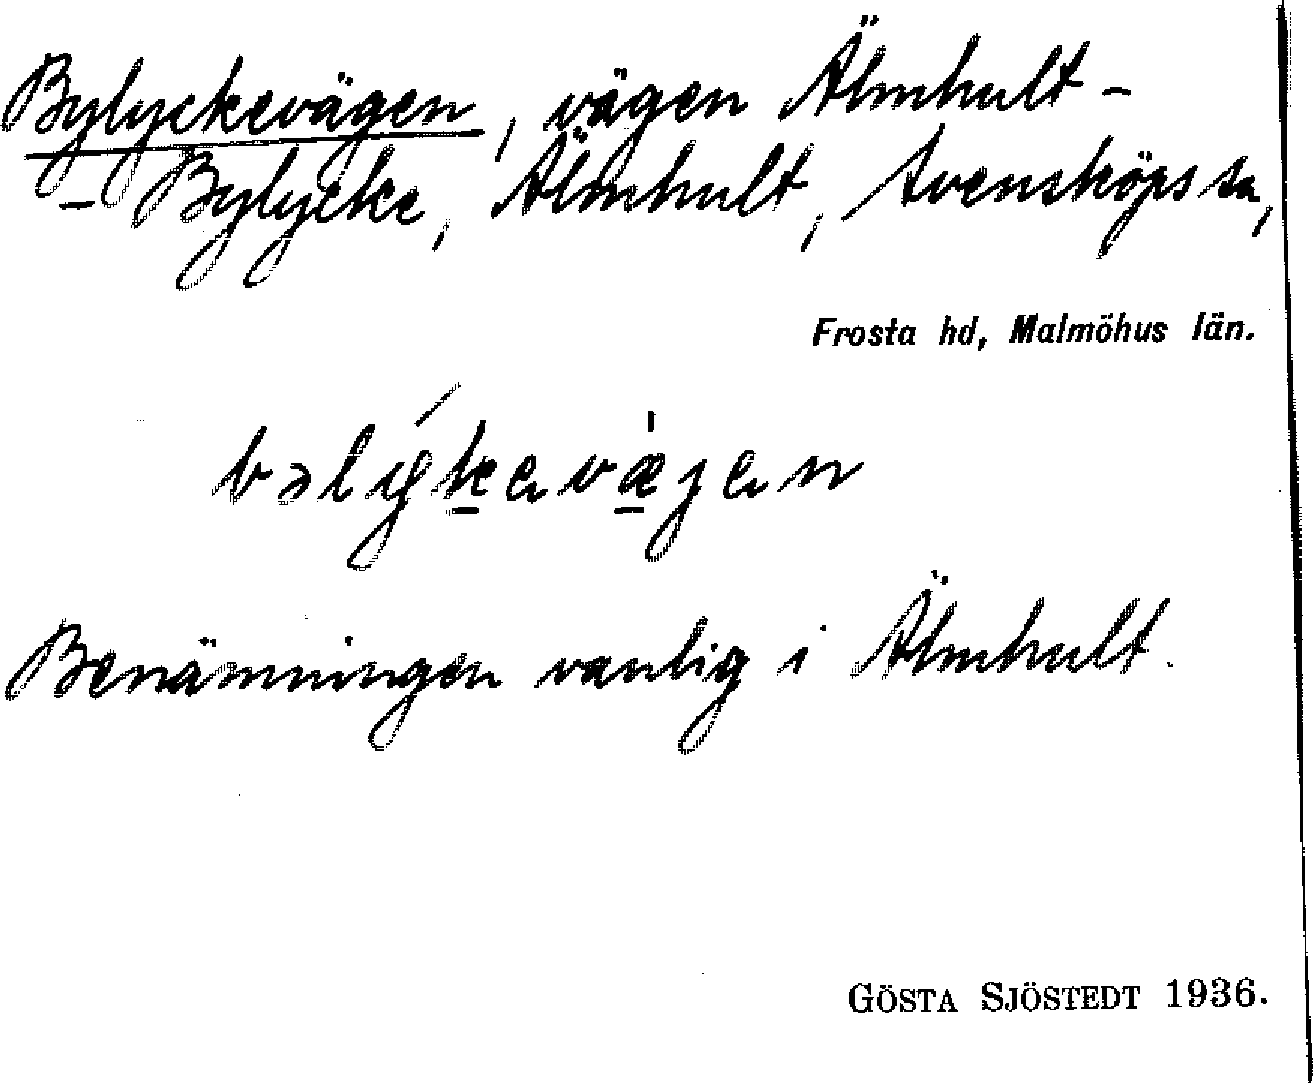 Bylyckevägen, vägen Älmhult -
- Bylycke, Älmhult, Svensköps sn,
Frosta hd, Malmöhus län.
bəlýkevæ̍gen
Benämningen vanlig i Älmhult.
GÖSTA SJÖSTEDT 1936.